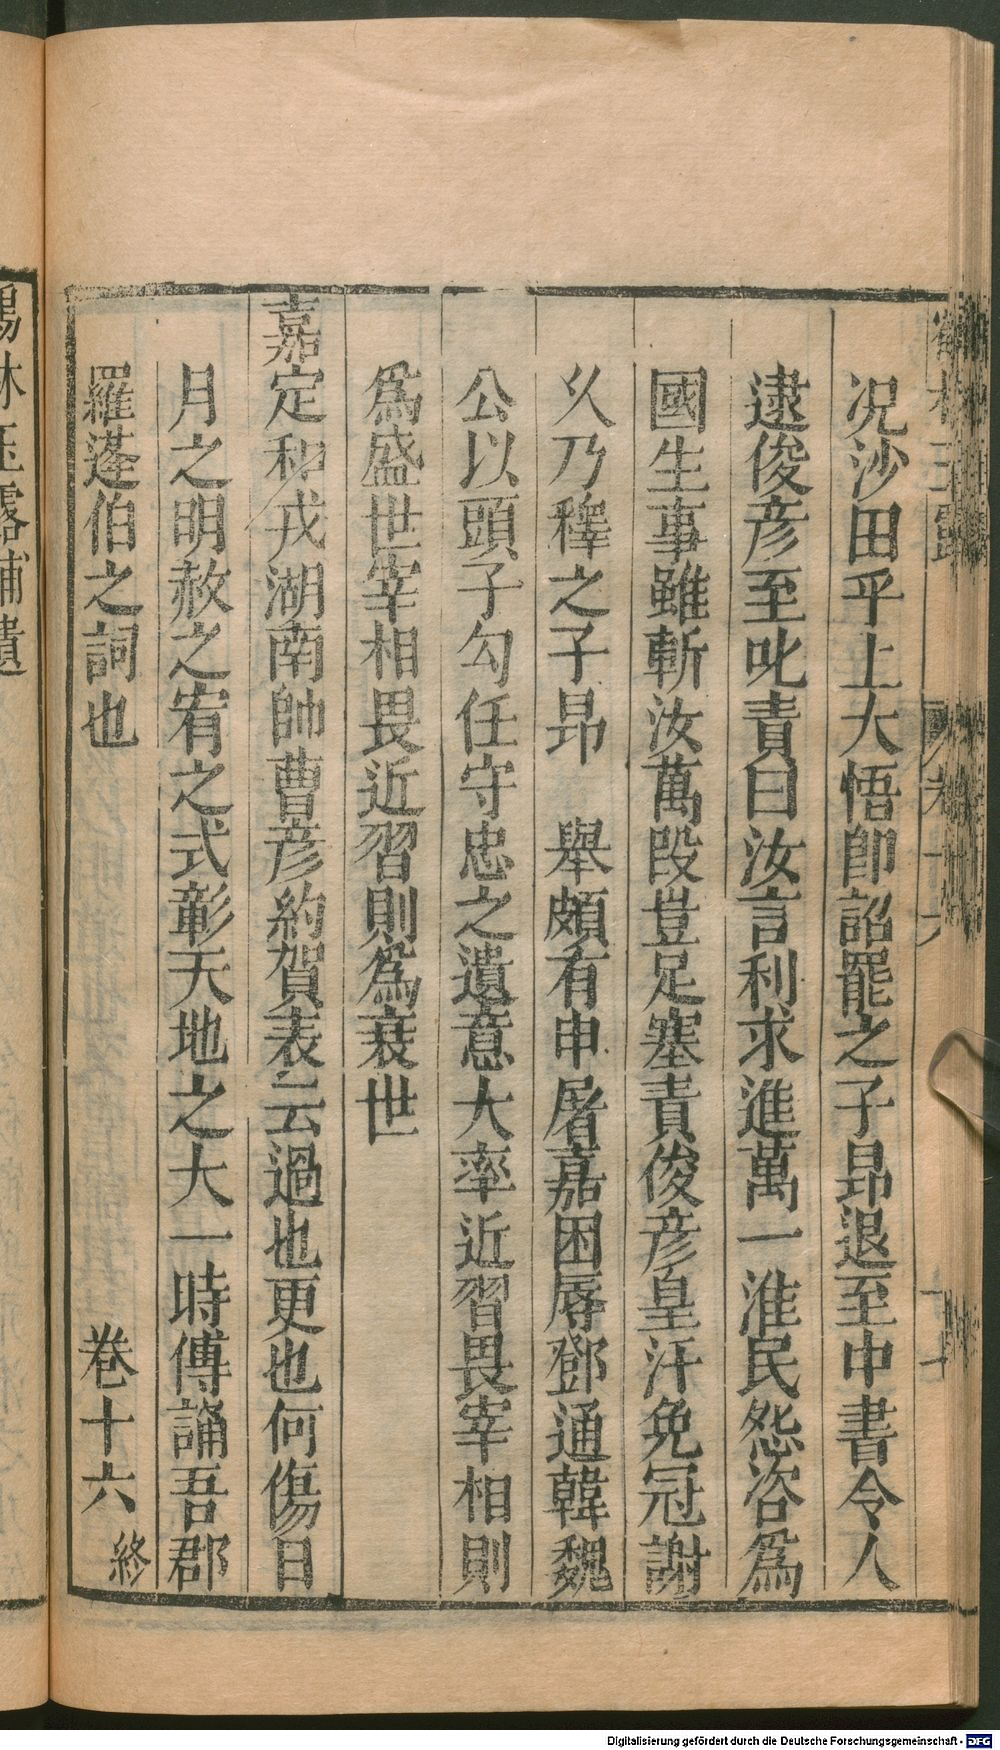 況沙田乎上大悟卽詔罷之子昻退至中書令人
逮俊彥至叱責曰汝言利求進萬一淮民怨咨爲
國生事雖斬汝萬段豈足塞責俊彥皇汗免冠謝
乆乃釋之子昻 舉頗有申屠嘉困辱鄧通韓魏
公以頭子勾任守忠之遺意大率近習畏宰相則
爲盛世宰相畏近習則爲衰世
嘉定和戎湖南帥曹彥約賀表云過也更也何傷日
月之明赦之宥之式彰天地之大一時傳誦吾郡
羅蓬伯之詞也 卷十六終
林玉露補遺
Digitalisierung gefördert durch die Deutsche Forschungsgemeinschaft - DFG